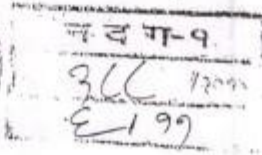 न द ग-१
३८८
६/११